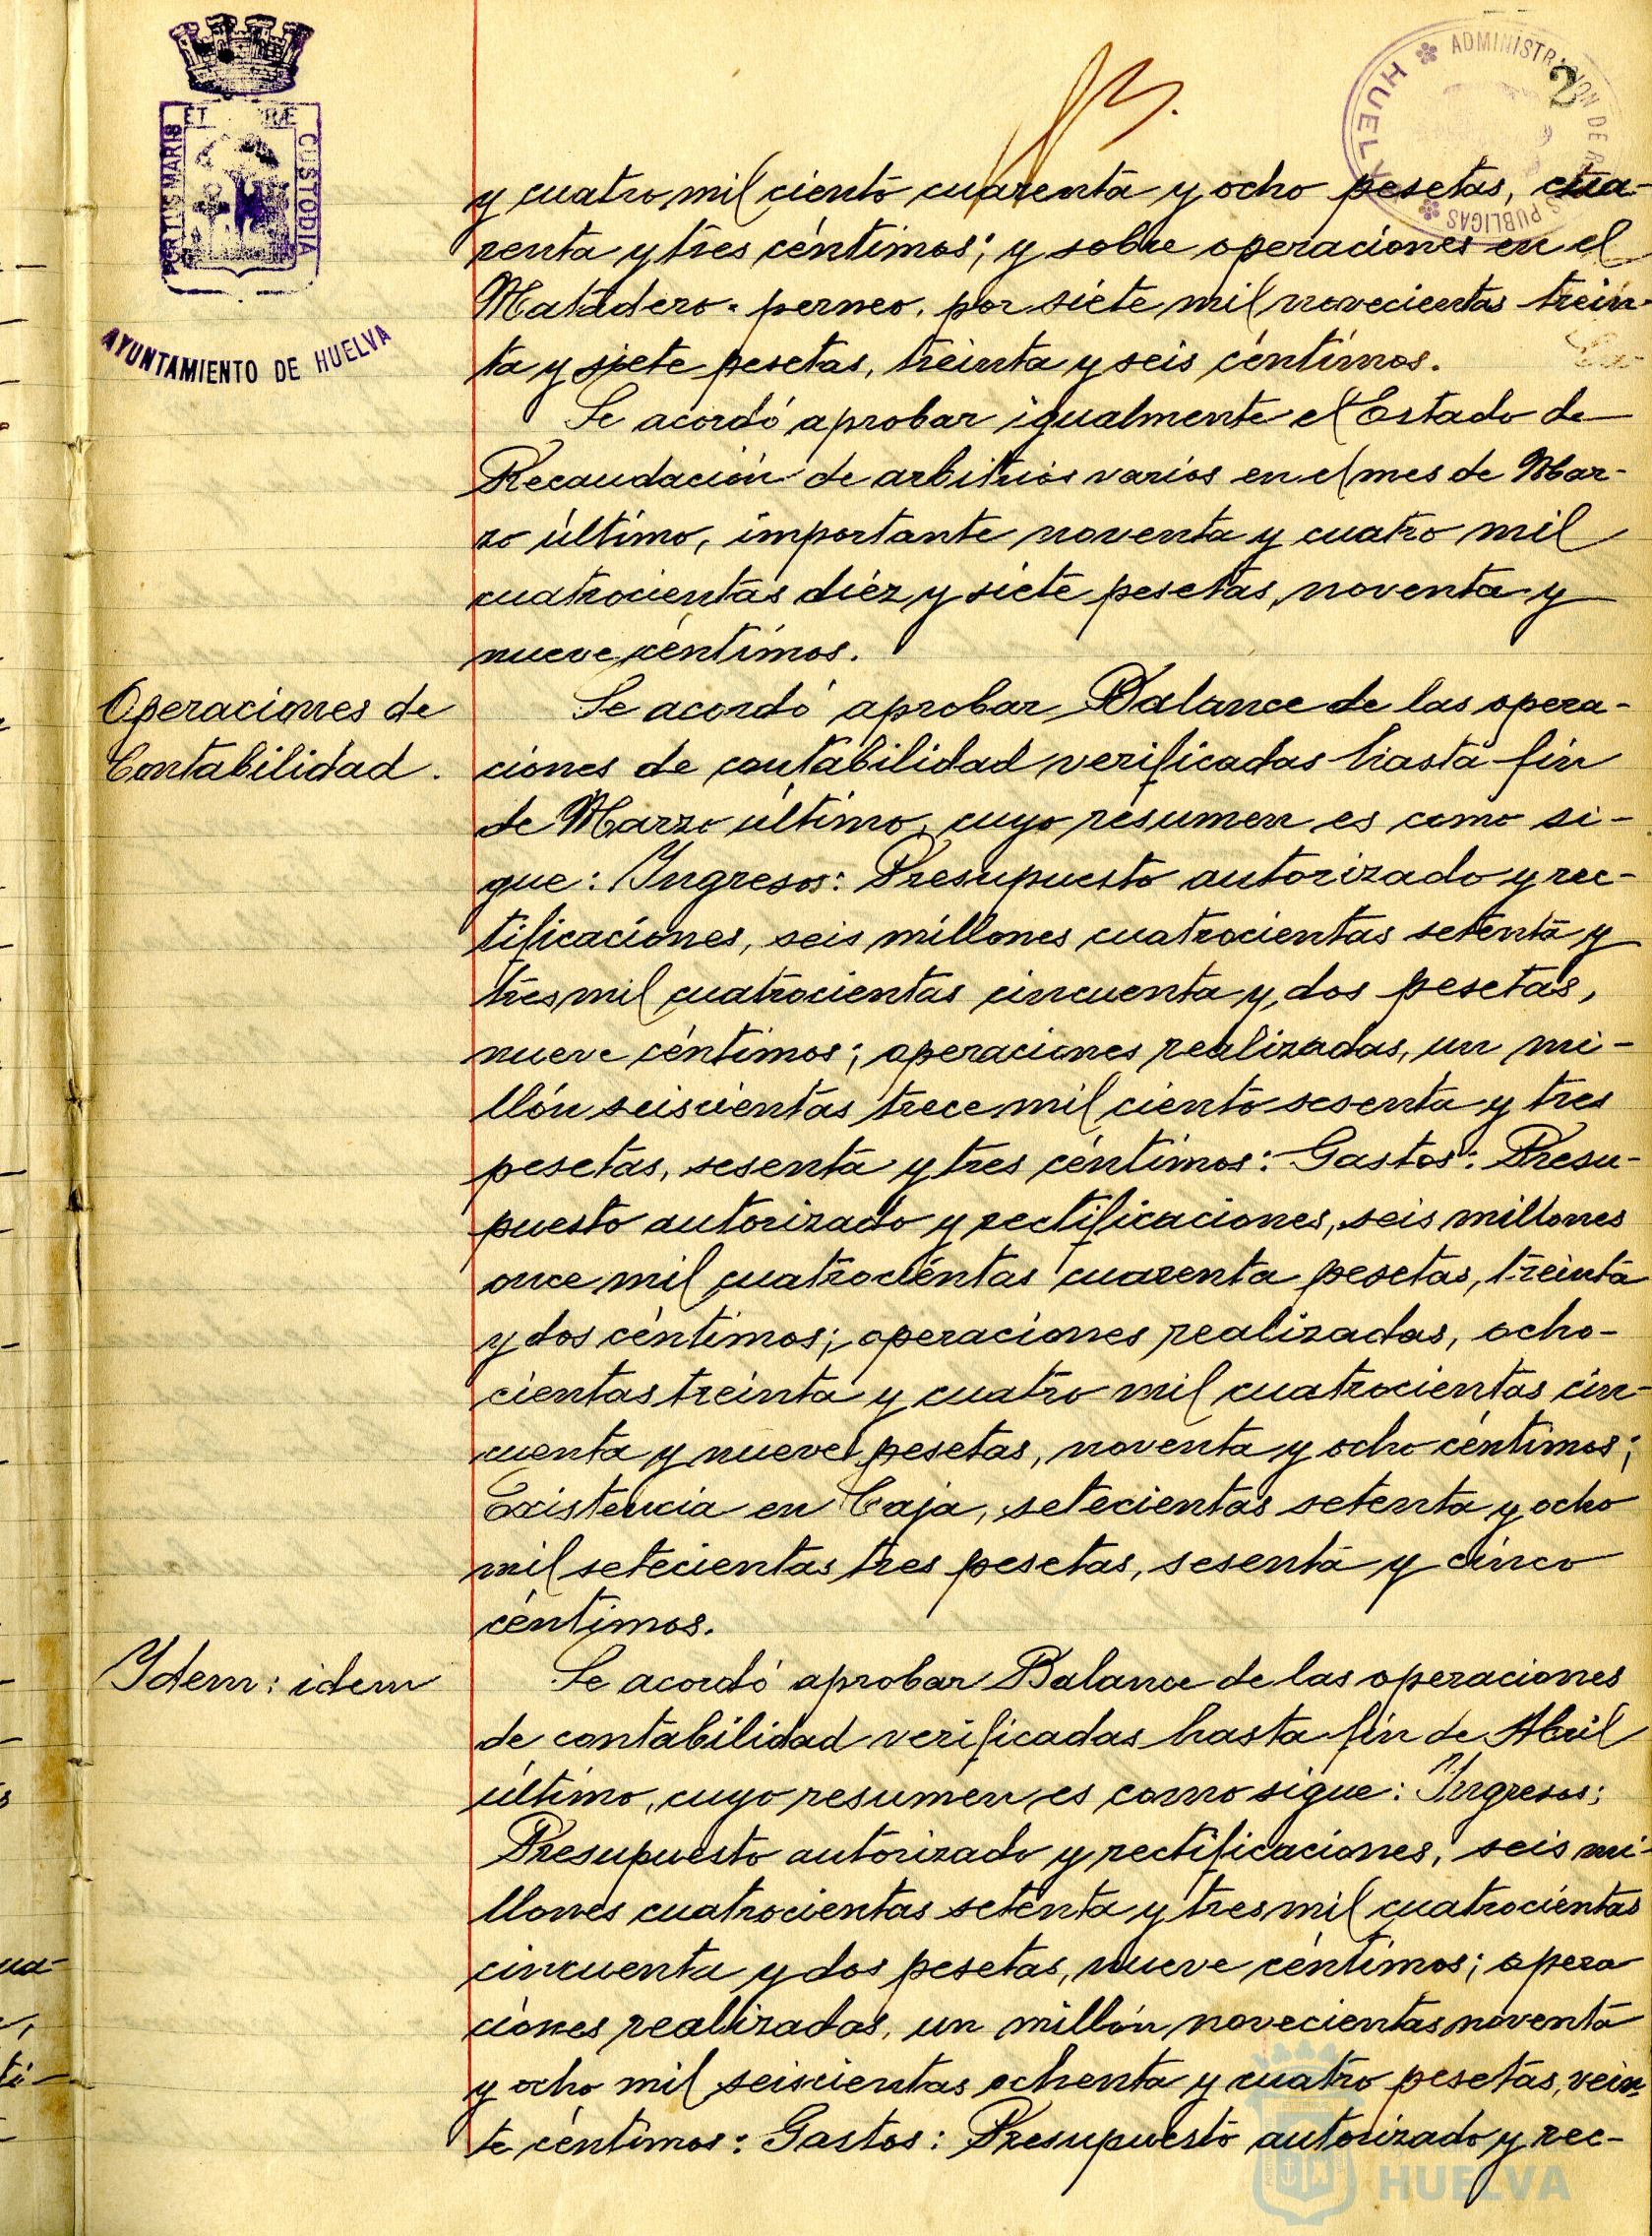 ET
PORTUS MARIS
CUSTODIA
AYUNTAMIENTO DE HUELVA
ADMINISTRACION DE
PUBLICAS
2
y cuatro mil ciento cuarenta y ocho pesetas, cua-
renta y tres céntimos; y sobre operaciones en el
Matadero-perneo, por siete mil novecientas trein-
ta y siete pesetas, treinta y seis céntimos.
Se acordó aprobar igualmente el Estado de
Recaudación de arbitrios varios en el mes de Mar-
zo último, importante noventa y cuatro mil
cuatrocientas diez y siete pesetas, noventa y
nueve céntimos.
Operaciones de
Contabilidad.
Se acordó aprobar Balance de las opera-
ciones de contabilidad verificadas hasta fin
de Marzo último, cuyo resumen es como si-
gue: Ingresos: Presupuesto autorizado y rec-
tificaciones, seis millones cuatrocientas setenta y
tres mil cuatrocientas cincuenta y dos pesetas,
nueve céntimos; operaciones realizadas, un mi-
llón seiscientas trece mil ciento sesenta y tres
pesetas, sesenta y tres céntimos: Gastos: Presu-
puesto autorizado y rectificaciones, seis millones
once mil cuatrocientas cuarenta pesetas, treinta
y dos céntimos; operaciones realizadas, ocho-
cientas treinta y cuatro mil cuatrocientas cin-
cuenta y nueve pesetas, noventa y ocho céntimos;
Existencia en Caja, setecientas setenta y ocho
mil setecientas tres pesetas, sesenta y cinco
céntimos.
Ydem: idem
Se acordó aprobar Balance de las operaciones
de contabilidad verificadas hasta fin de Abril
último, cuyo resumen es como sigue: Ingresos;
Presupuesto autorizado y rectificaciones, seis mi-
llones cuatrocientas setenta y tres mil cuatrocientas
cincuenta y dos pesetas, nueve céntimos; opera
ciones realizadas, un millón novecientas noventa
y ocho mil seiscientas ochenta y cuatro pesetas, vein-
te céntimos: Gastos: Presupuesto autorizado y rec-
HUELVA